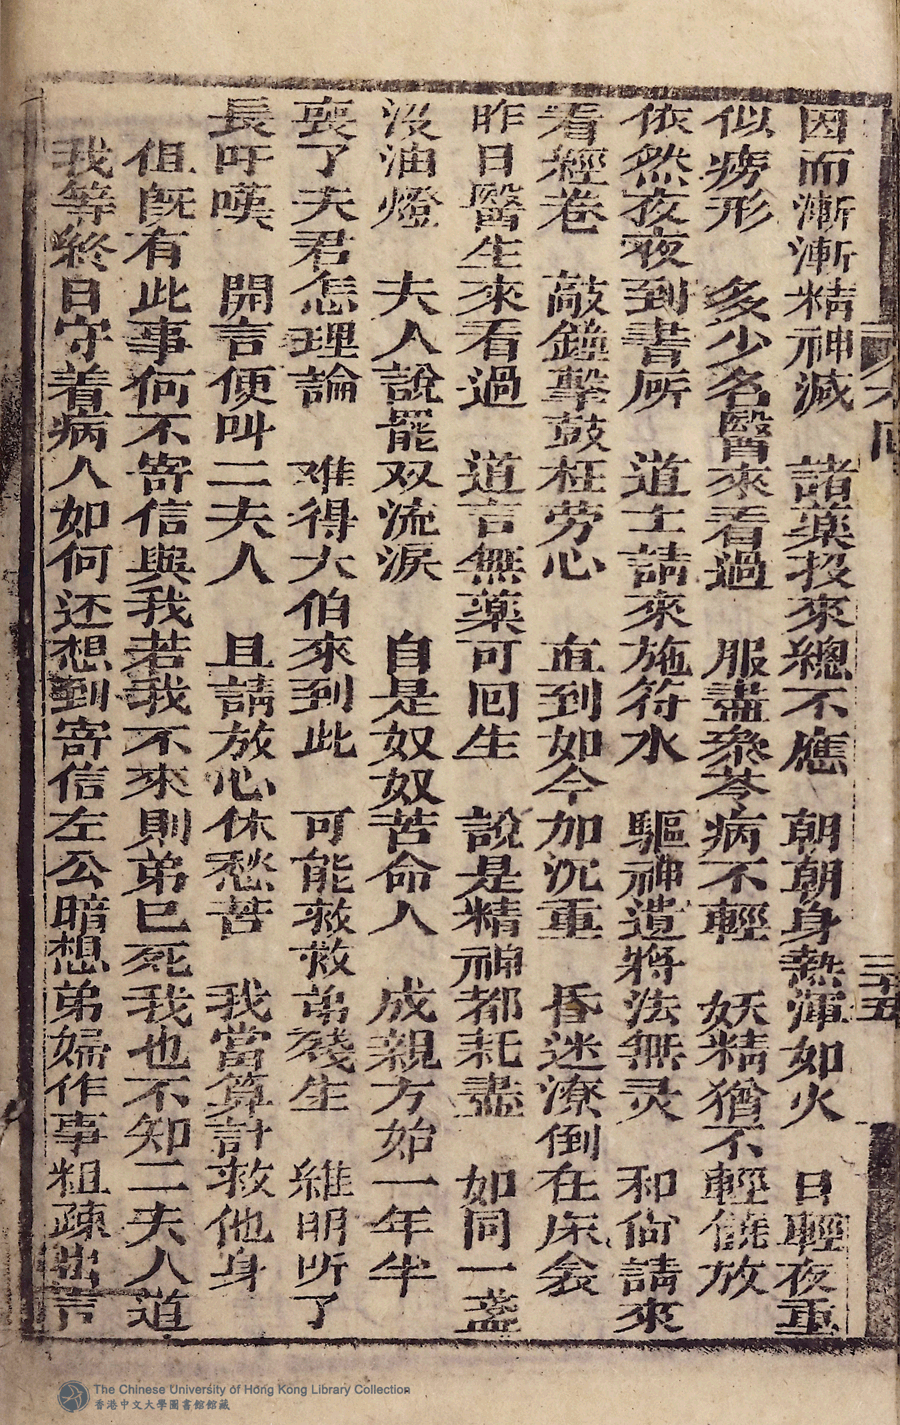 因而漸漸精神減　諸藥投來總不應　朝朝身熱渾如火　日輕夜重
似痨形　多少名醫來看過　服盡參苓病不輕　妖精猶不輕饒放
依然夜夜到書所　道士請來施符水　驅神遣將法無灵　和尙請來
看經卷　敲鐘擊鼓枉劳心　直到如今加沉重　昏迷潦倒在床衾
昨日醫生來看過　道言無藥可囘生　說是精神都耗盡　如同一盞
沒油燈　夫人說罷双流淚　自是奴奴苦命人　成親方始一年半
喪了夫君怎理論　难得大伯來到此　可能救救弟殘生　維明听了
長吁嘆　開言便叫二夫人　且請放心休愁苦　我當算計救他身
伹既有此事何不寄信與我若我不來則弟已死我也不知二夫人道
我等終日守着病人如何还想到寄信左公暗想弟婦作事粗疎出言
六囘
三十五
The Chinese University of Hong Kong Library Collection
香港中文大學圖書館館藏